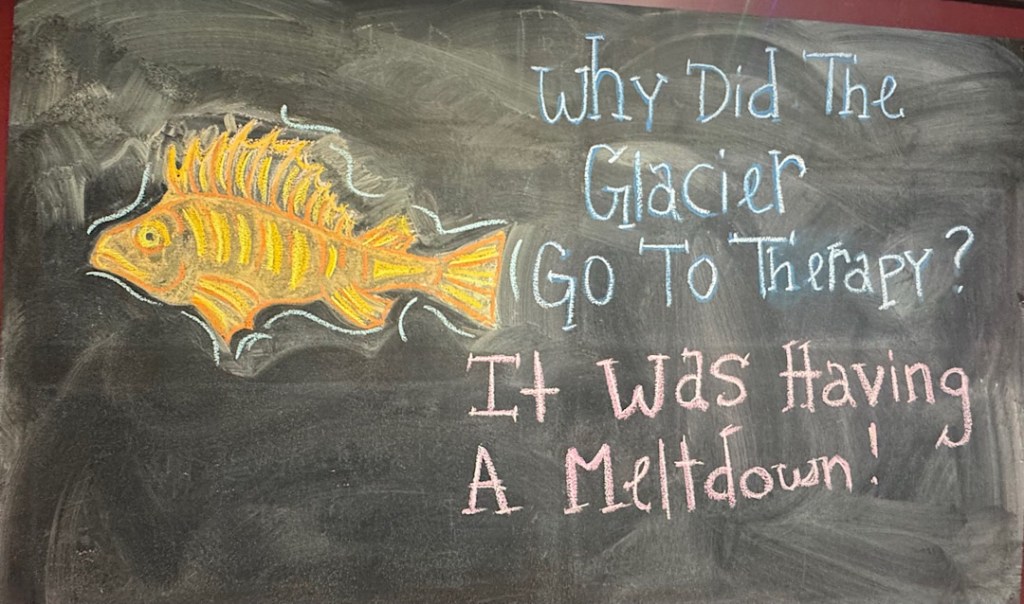 Why Did The
Glacier
Go To Therapy?
It Was Having
A Meltdown!